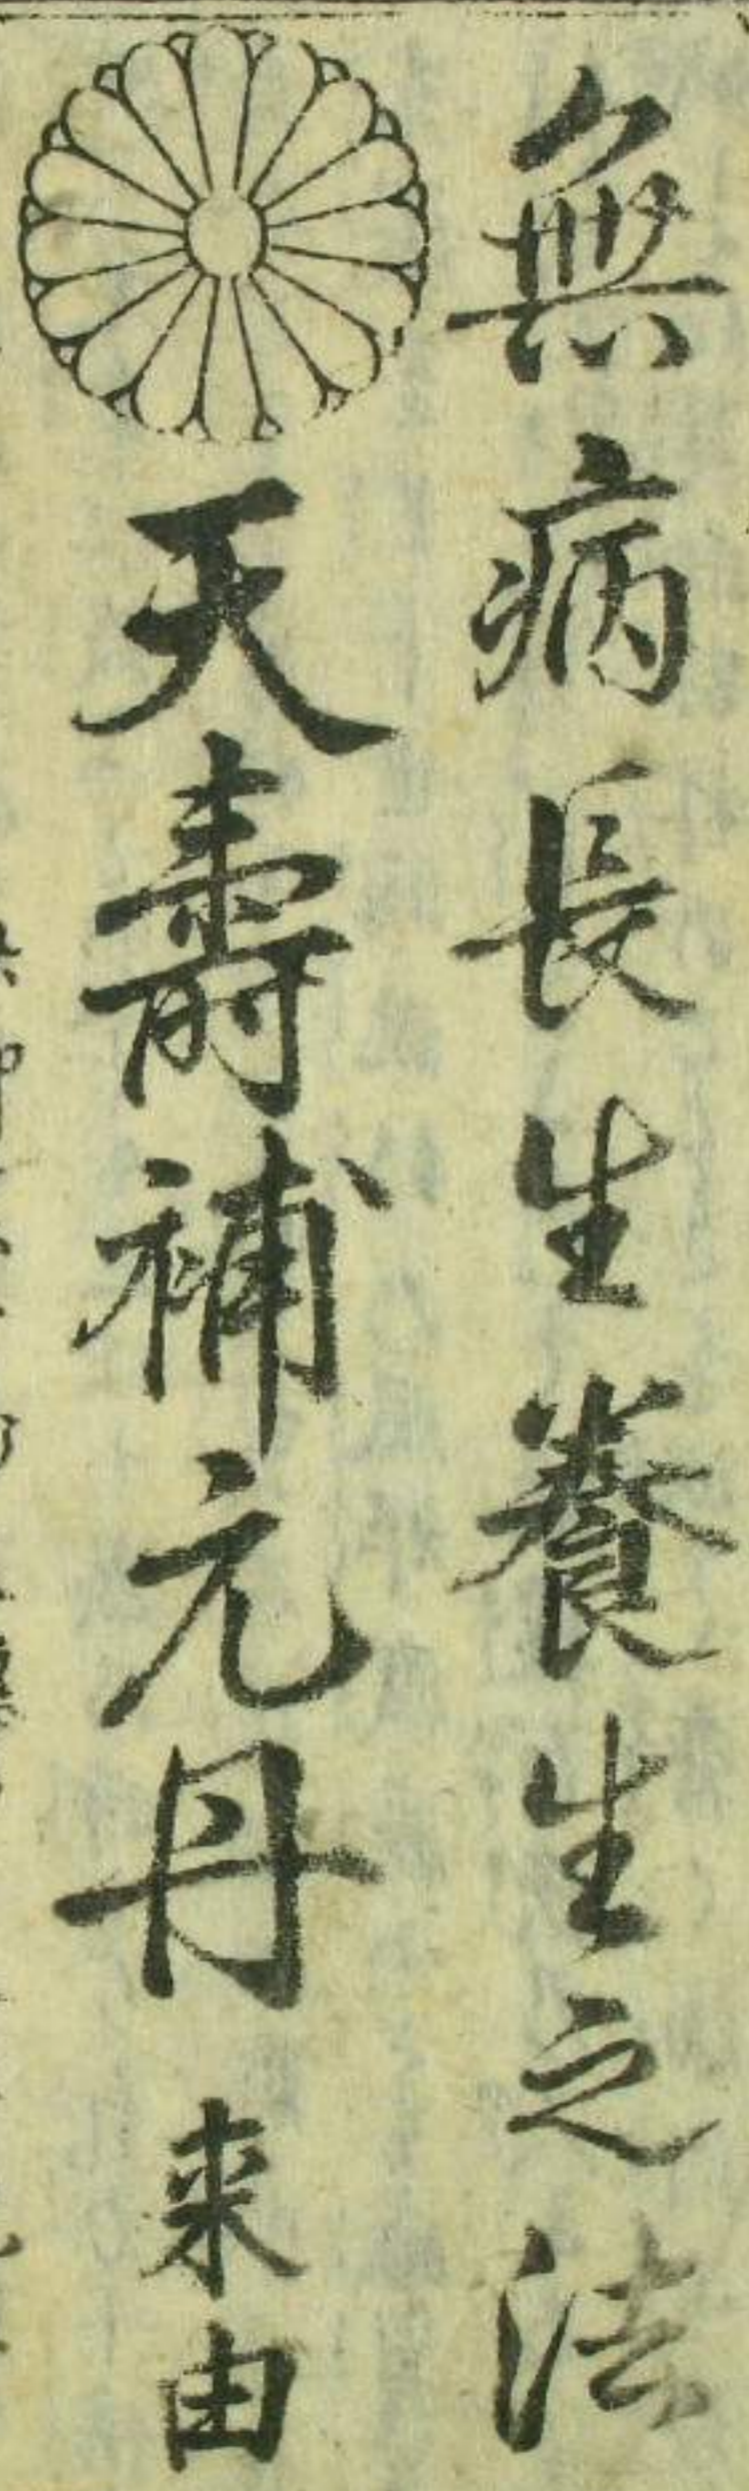 無病長生養生之法
天壽補元丹 来由